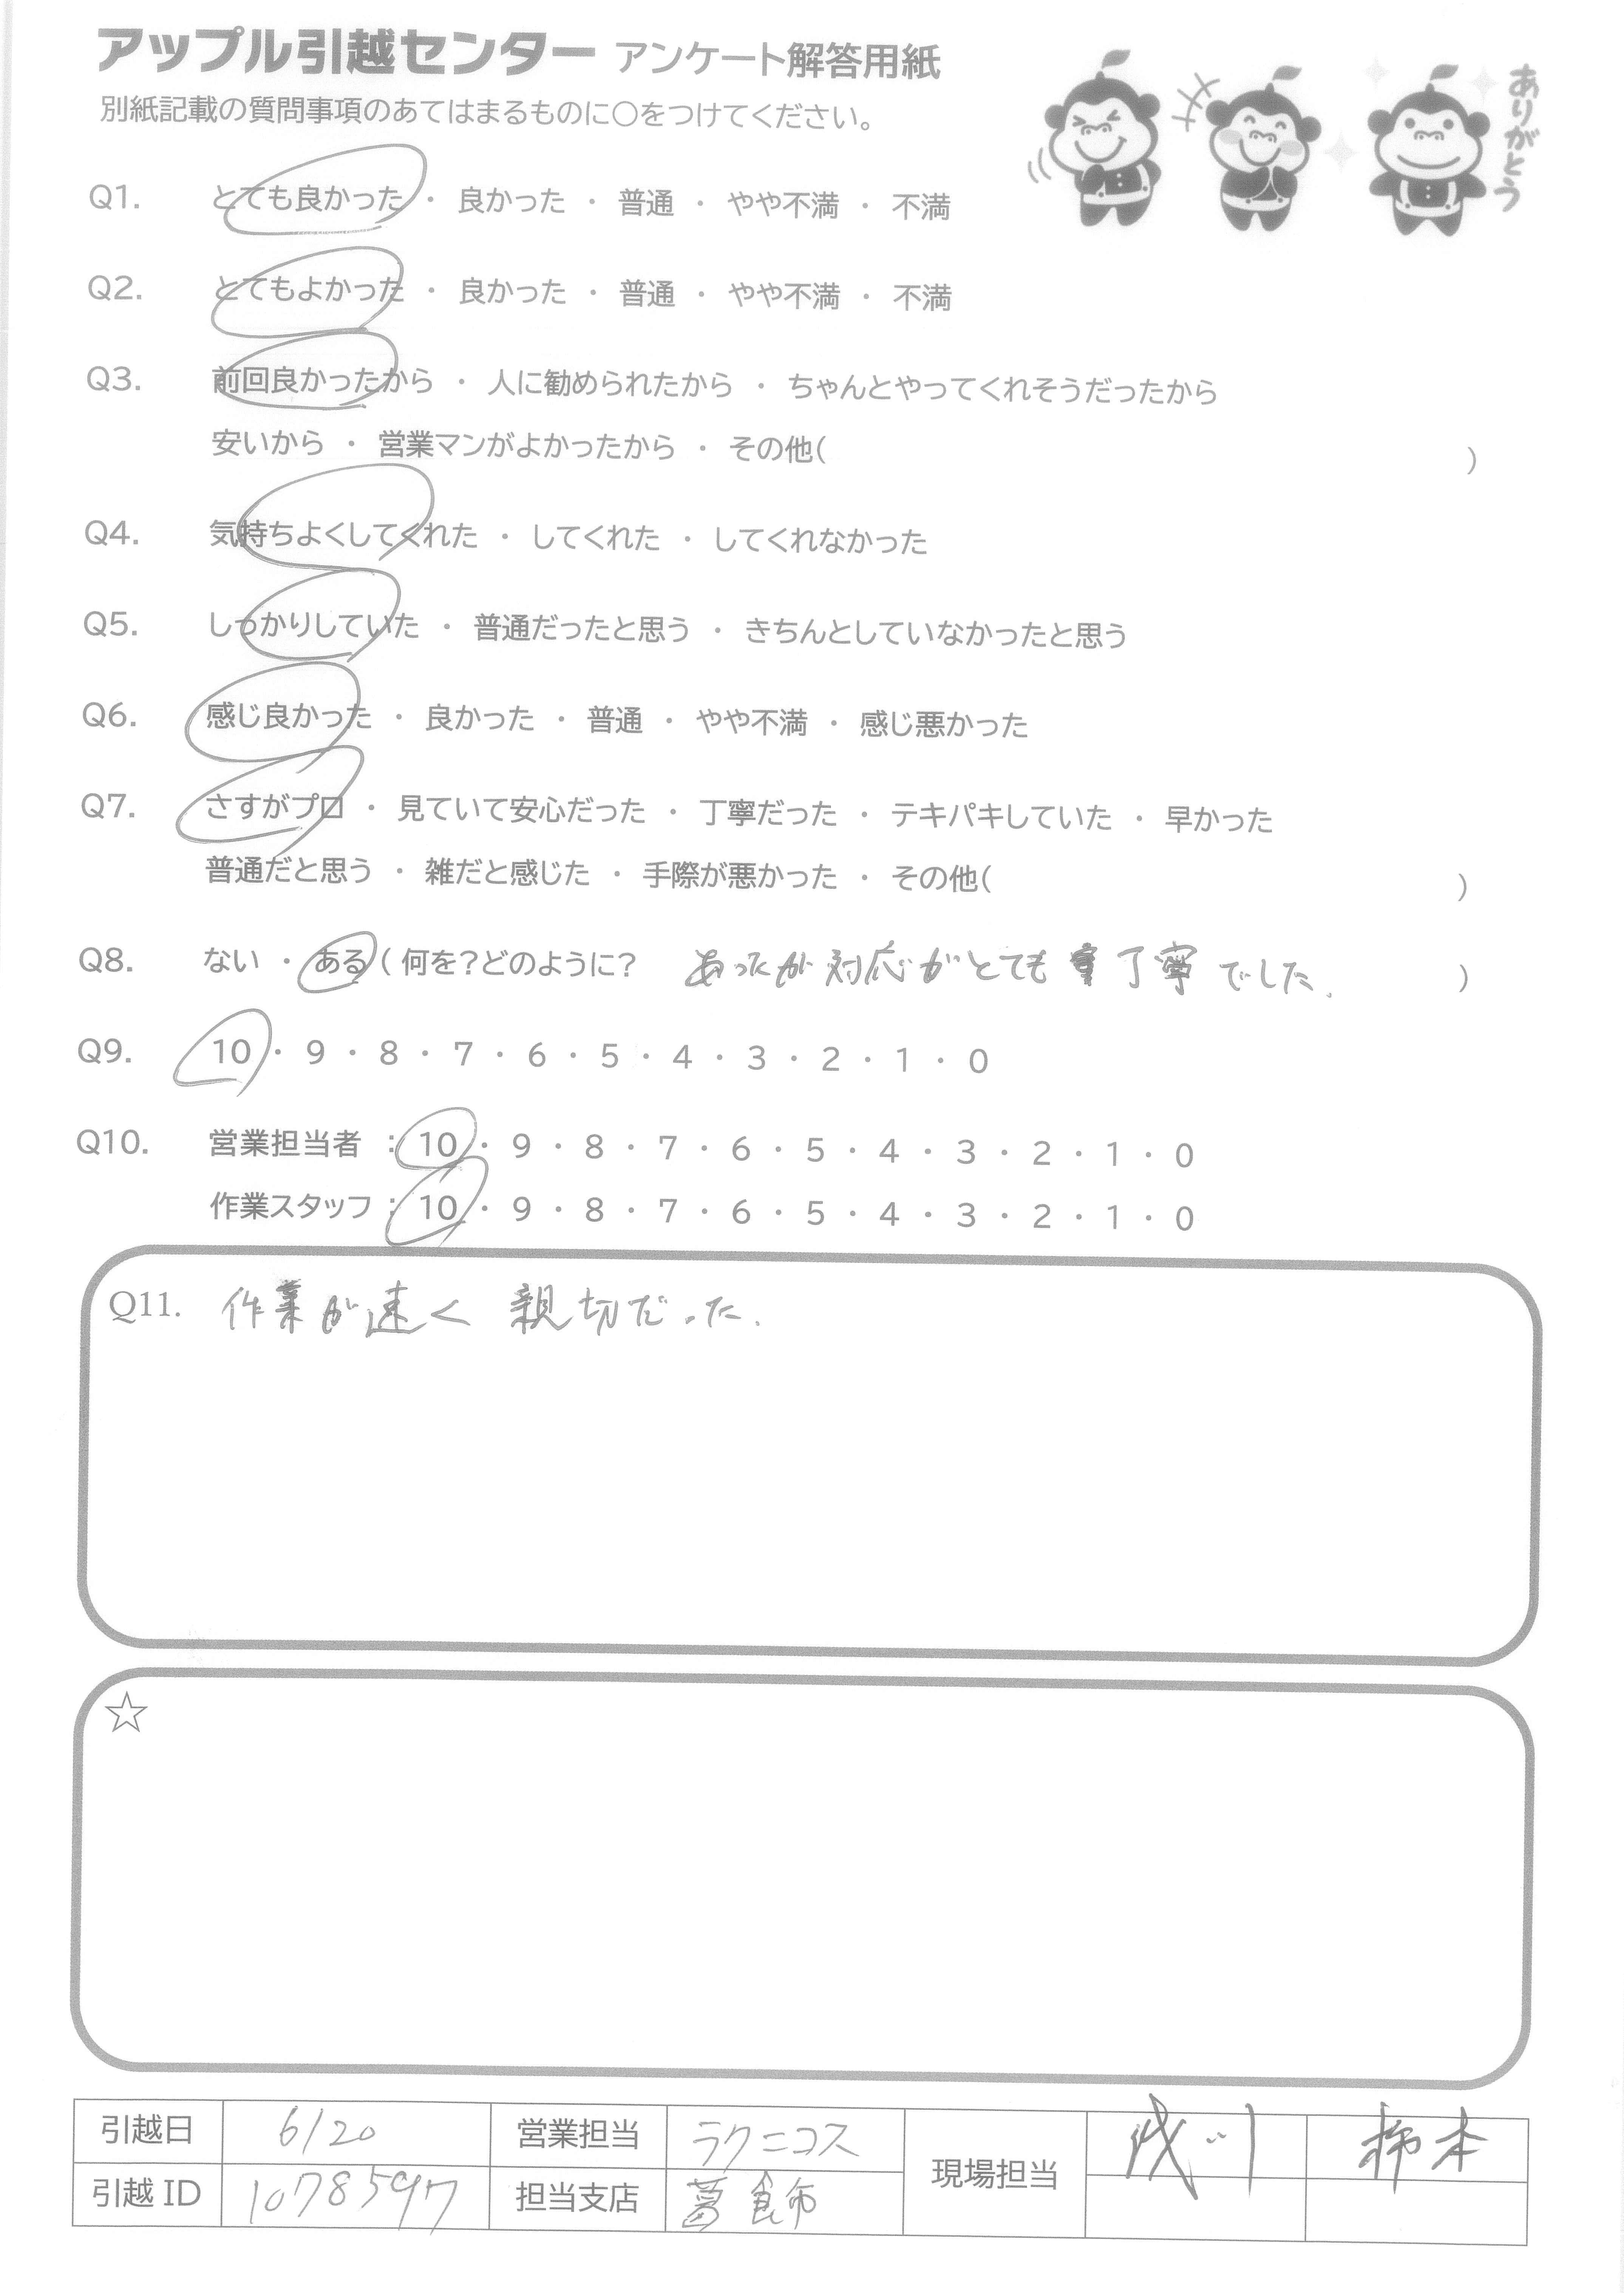 アップル引越センター アンケート解答用紙
別紙記載の質問事項のあてはまるものに○をつけてください。
ありがとう
Q1. とても良かった ・ 良かった ・ 普通 ・ やや不満 ・ 不満
Q2. とてもよかった ・ 良かった ・ 普通 ・ やや不満 ・ 不満
Q3. 前回良かったから ・ 人に勧められたから ・ ちゃんとやってくれそうだったから
安いから ・ 営業マンがよかったから ・ その他( )
Q4. 気持ちよくしてくれた ・ してくれた ・ してくれなかった
Q5. しっかりしていた ・ 普通だったと思う ・ きちんとしていなかったと思う
Q6. 感じ良かった ・ 良かった ・ 普通 ・ やや不満 ・ 感じ悪かった
Q7. さすがプロ ・ 見ていて安心だった ・ 丁寧だった ・ テキパキしていた ・ 早かった
普通だと思う ・ 雑だと感じた ・ 手際が悪かった ・ その他( )
Q8. ない ・ ある ( 何を?どのように? あったが対応がとても丁寧でした. )
Q9. 10 ・ 9 ・ 8 ・ 7 ・ 6 ・ 5 ・ 4 ・ 3 ・ 2 ・ 1 ・ 0
Q10. 営業担当者 : 10 ・ 9 ・ 8 ・ 7 ・ 6 ・ 5 ・ 4 ・ 3 ・ 2 ・ 1 ・ 0
作業スタッフ : 10 ・ 9 ・ 8 ・ 7 ・ 6 ・ 5 ・ 4 ・ 3 ・ 2 ・ 1 ・ 0
Q11. 作業が速く 親切だった.
☆
引越日 6/20 営業担当 ラクニコス 現場担当 柿本
引越 ID 10778597 担当支店 葛飾